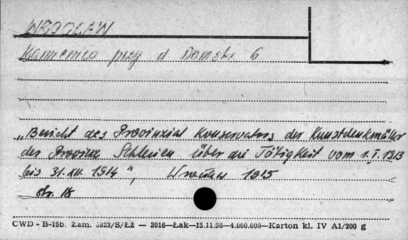 WROCŁAW
Kamienica przy d. Domstr. 6
„Bericht des Provinzial Konservators der Kunstdenkmäler
der Provinz Schlesien über die Tätigkeit vom 1.I.1913
bis 31.XII.1914", Wrocław 1915
str. 18
CWD - B-15b. Zam. 5823/S/ŁŻ — 2016—Łak—15.11.56—4.000.000—Karton kl. IV A1/200 g